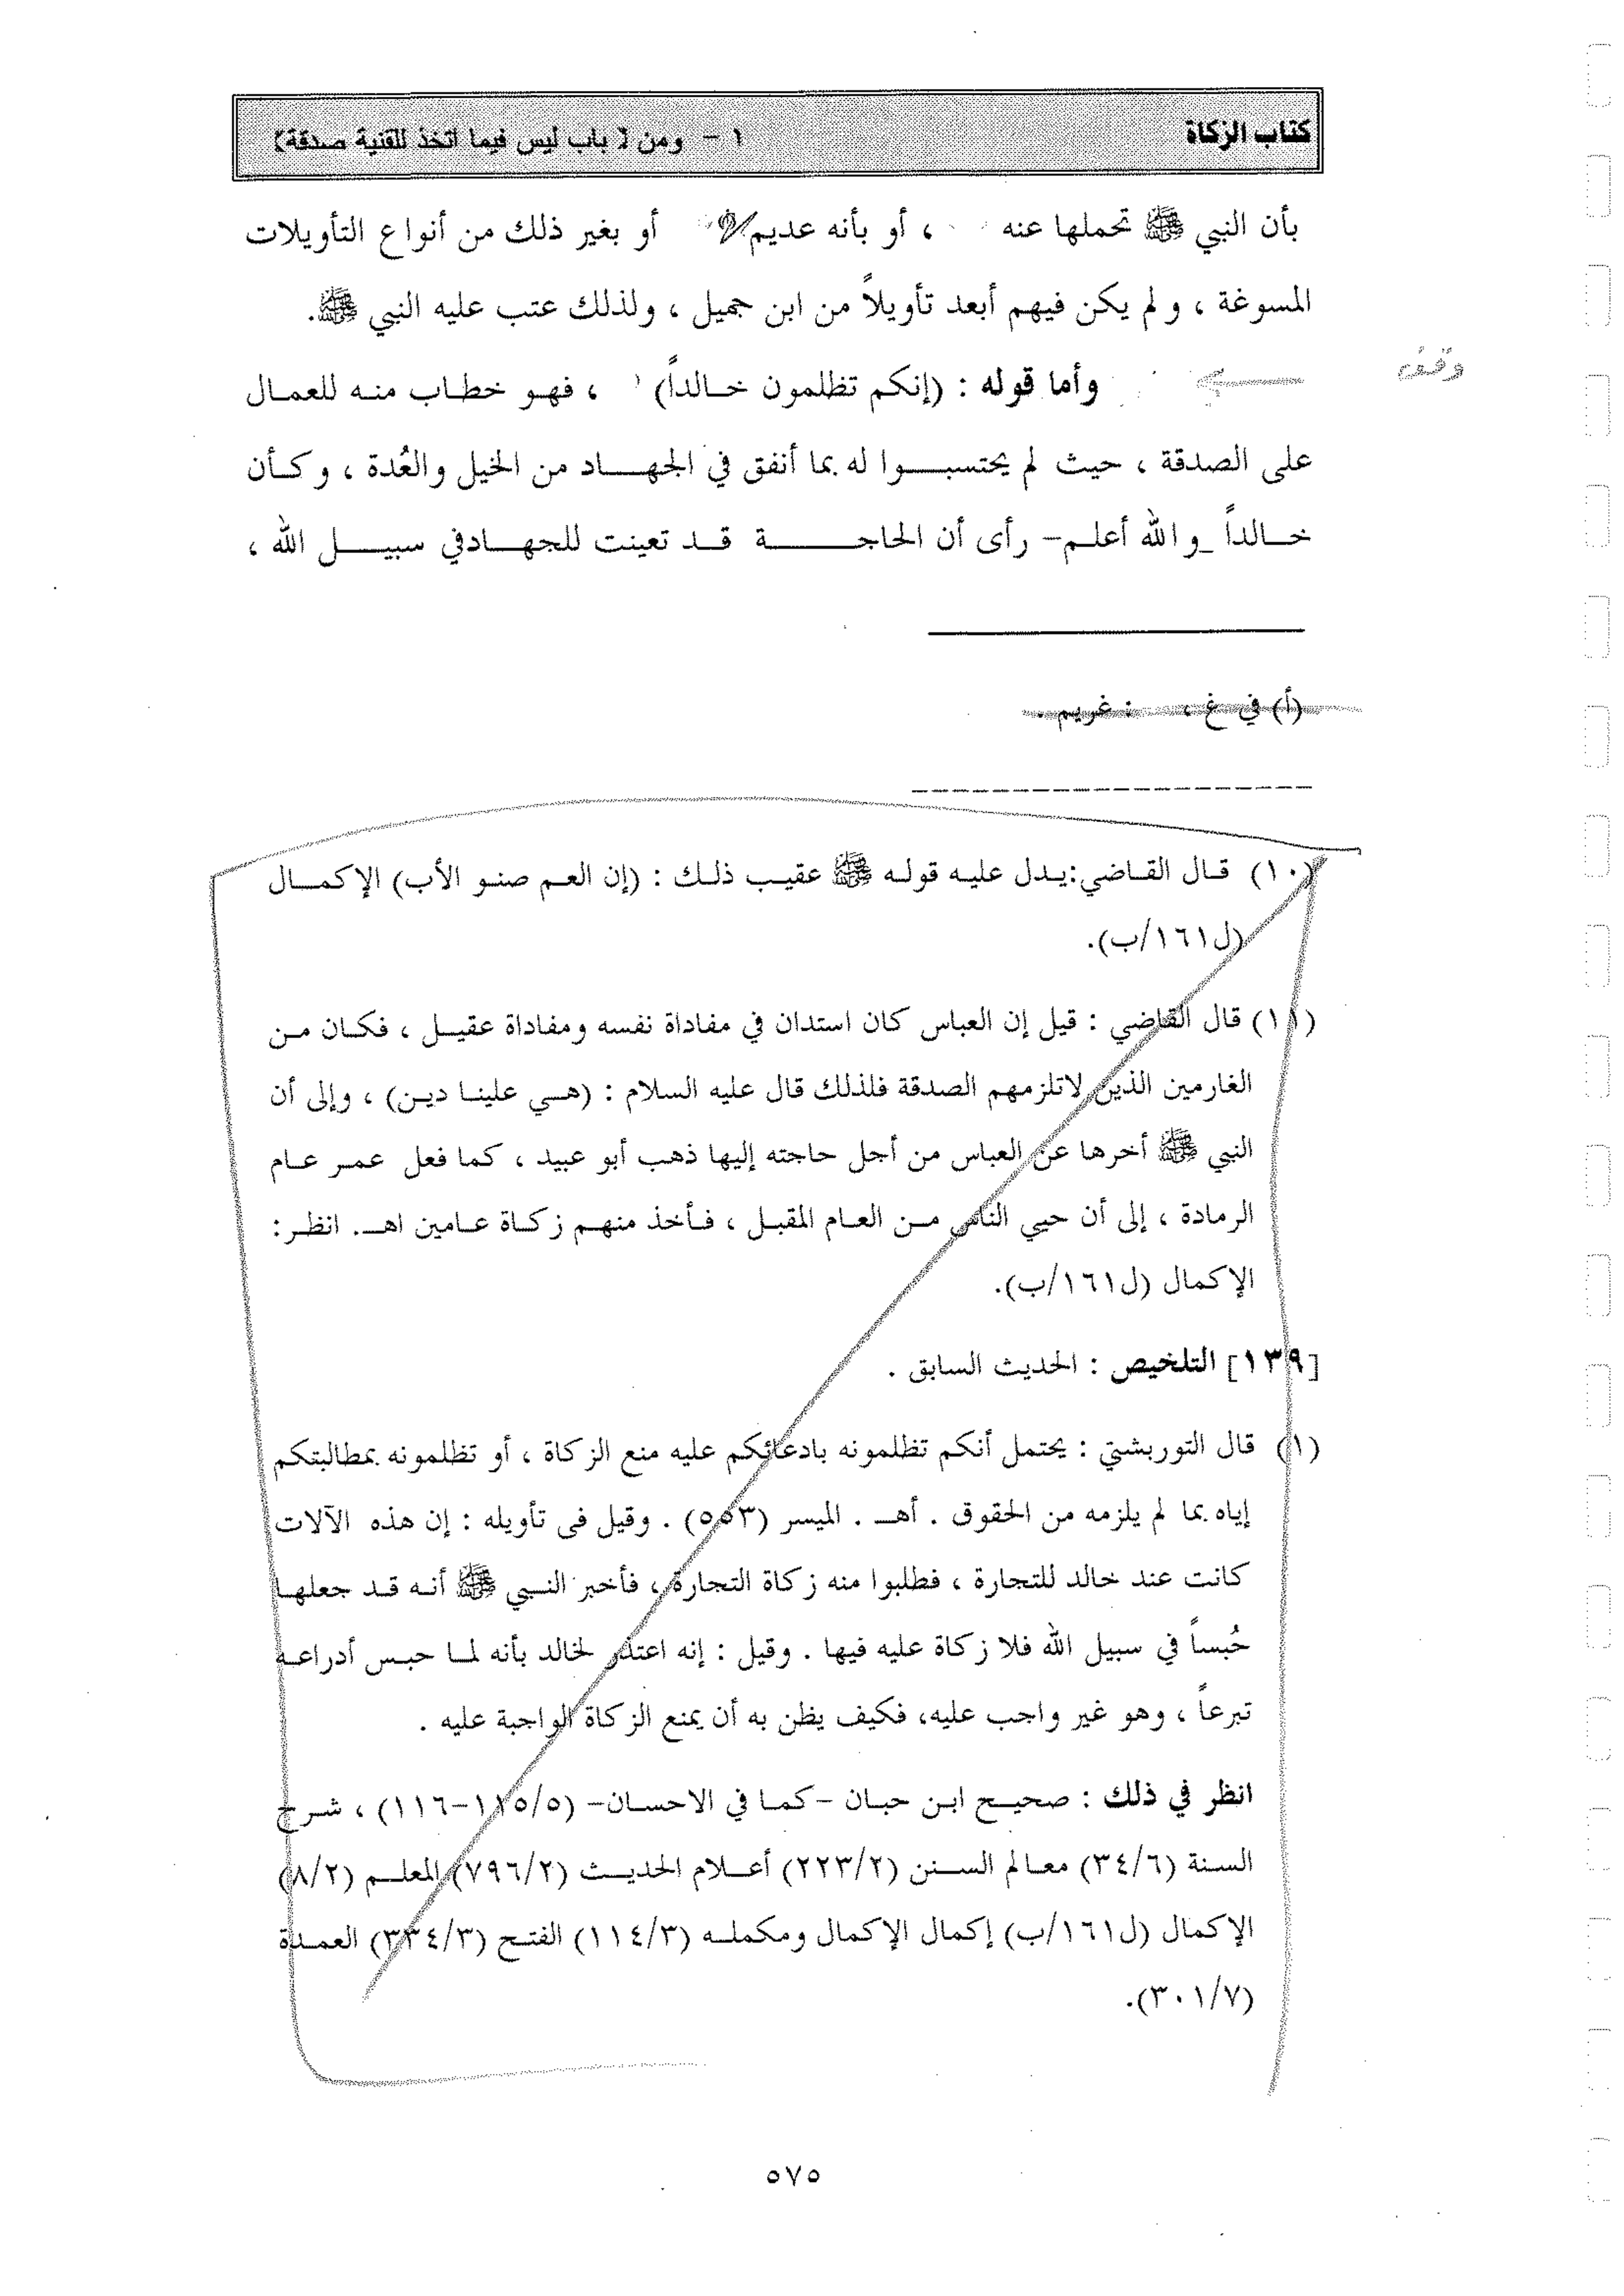 كتاب الزكاة
١ - ومن ( باب ليس فيما اتخذ للقنية صدقة)
بأن النبي ﷺ تحملها عنه ، أو بأنه عديم أو بغير ذلك من أنواع التأويلات
المسوغة ، ولم يكن فيهم أبعد تأويلاً من ابن جميل ، ولذلك عتب عليه النبي ﷺ.
وقف
وأما قوله : (إنكم تظلمون خالداً) ، فهو خطاب منه للعمال
على الصدقة ، حيث لم يحتسبوا له بما أنفق في الجهاد من الخيل والعُدة ، وكأن
خالداً _والله أعلم- رأى أن الحاجة قد تعينت للجهادفي سبيل الله ،
(أ) في غ ، : غريم .
(١٠) قال القاضي:يدل عليه قوله ﷺ عقيب ذلك : (إن العم صنو الأب) الإكمال
(ل١٦١/ب).
(١١) قال القاضي : قيل إن العباس كان استدان في مفاداة نفسه ومفاداة عقيل ، فكان من
الغارمين الذين لاتلزمهم الصدقة فلذلك قال عليه السلام : (هي علينا دين) ، وإلى أن
النبي ﷺ أخرها عن العباس من أجل حاجته إليها ذهب أبو عبيد ، كما فعل عمر عام
الرمادة ، إلى أن حيي الناس من العام المقبل ، فأخذ منهم زكاة عامين اهـ. انظر:
الإكمال (ل١٦١/ب).
[١٣٩] التلخيص : الحديث السابق .
(١) قال التوربشتي : يحتمل أنكم تظلمونه بادعائكم عليه منع الزكاة ، أو تظلمونه بمطالبتكم
إياه بما لم يلزمه من الحقوق . أهـ . الميسر (٥٥٣) . وقيل فى تأويله : إن هذه الآلات
كانت عند خالد للتجارة ، فطلبوا منه زكاة التجارة ، فأخبر النبي ﷺ أنه قد جعلها
حُبساً في سبيل الله فلا زكاة عليه فيها . وقيل : إنه اعتذر لخالد بأنه لما حبس أدراعه
تبرعاً ، وهو غير واجب عليه، فكيف يظن به أن يمنع الزكاة الواجبة عليه .
انظر في ذلك : صحيح ابن حبان -كما في الاحسان- (١١٥/٥-١١٦) ، شرح
السنة (٣٤/٦) معالم السنن (٢٢٣/٢) أعلام الحديث (٧٩٦/٢) المعلم (٨/٢)
الإكمال (ل١٦١/ب) إكمال الإكمال ومكمله (١١٤/٣) الفتح (٣٣٤/٣) العمدة
(٣٠١/٧).
٥٧٥